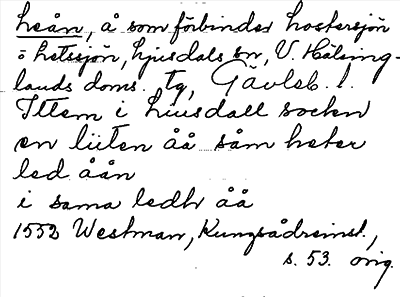 heån, å som förbinder hostersjön
= hetssjön, hjusdals sn, V. Hälsing-
lands doms. tg, Gävleb. l.
Ittem i liusdall socken
en liiten åå såm heter
led åån
i sama ledh åå
1552 Westman, Kungsådreinst.,
s. 53. orig.